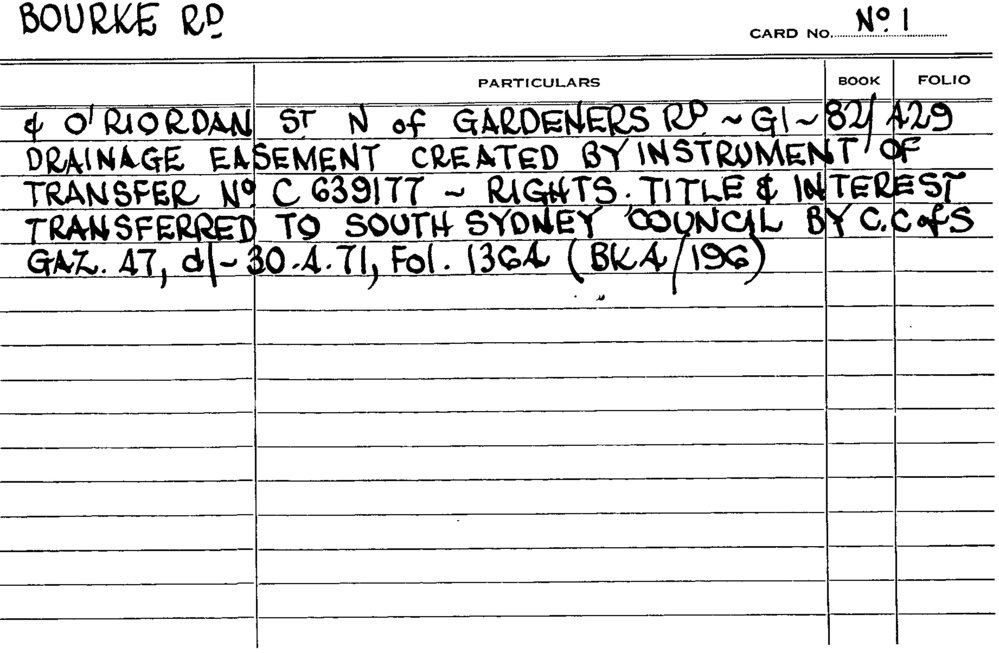 BOURKE RD
CARD NO. Nº 1
PARTICULARS BOOK FOLIO
& O'RIORDAN ST N of GARDENERS RD ~ G1 ~ 82/429
DRAINAGE EASEMENT CREATED BY INSTRUMENT OF
TRANSFER Nº C 639177 ~ RIGHTS. TITLE & INTEREST
TRANSFERRED TO SOUTH SYDNEY COUNCIL BY C.C of S
GAZ. 47, d/- 30.4.71, Fol. 1364 (BK4/196)